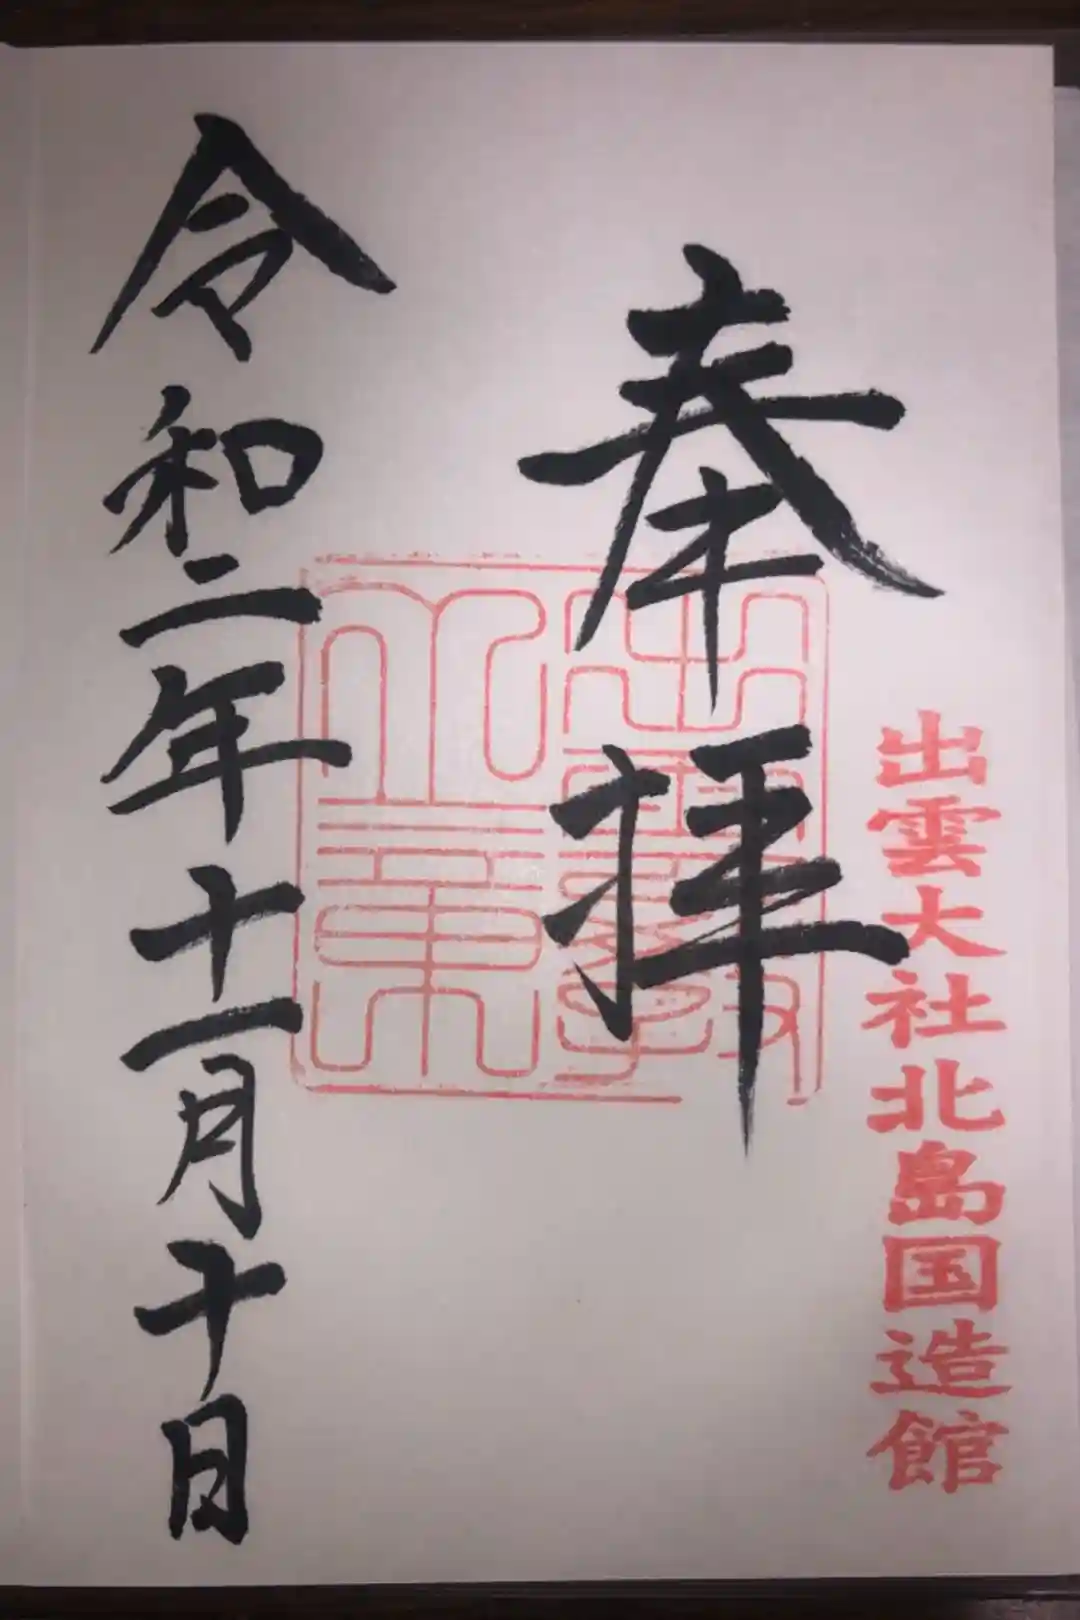 出雲大社北島国造館
奉拝
出雲教
令和二年十一月十日